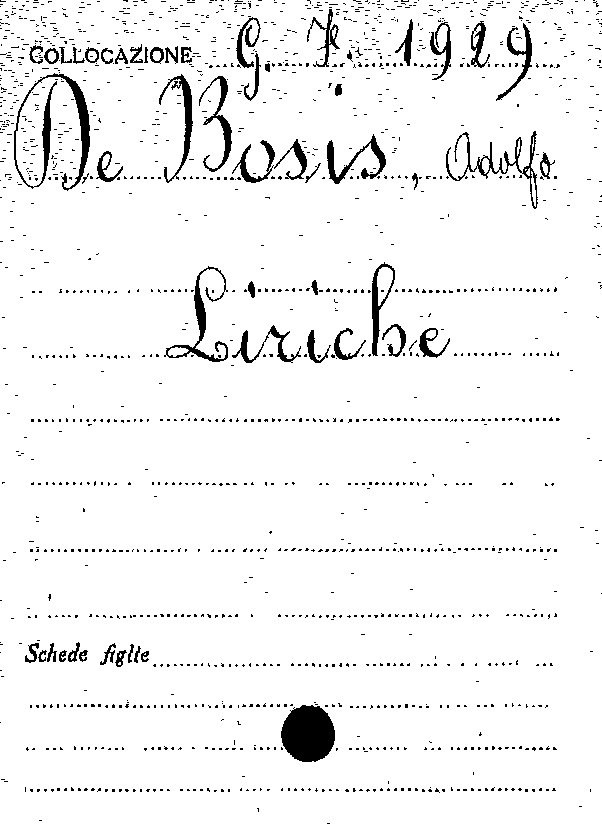 COLLOCAZIONE G. F. 1929
De Bosis, Adolfo
Liriche
Schede figlie